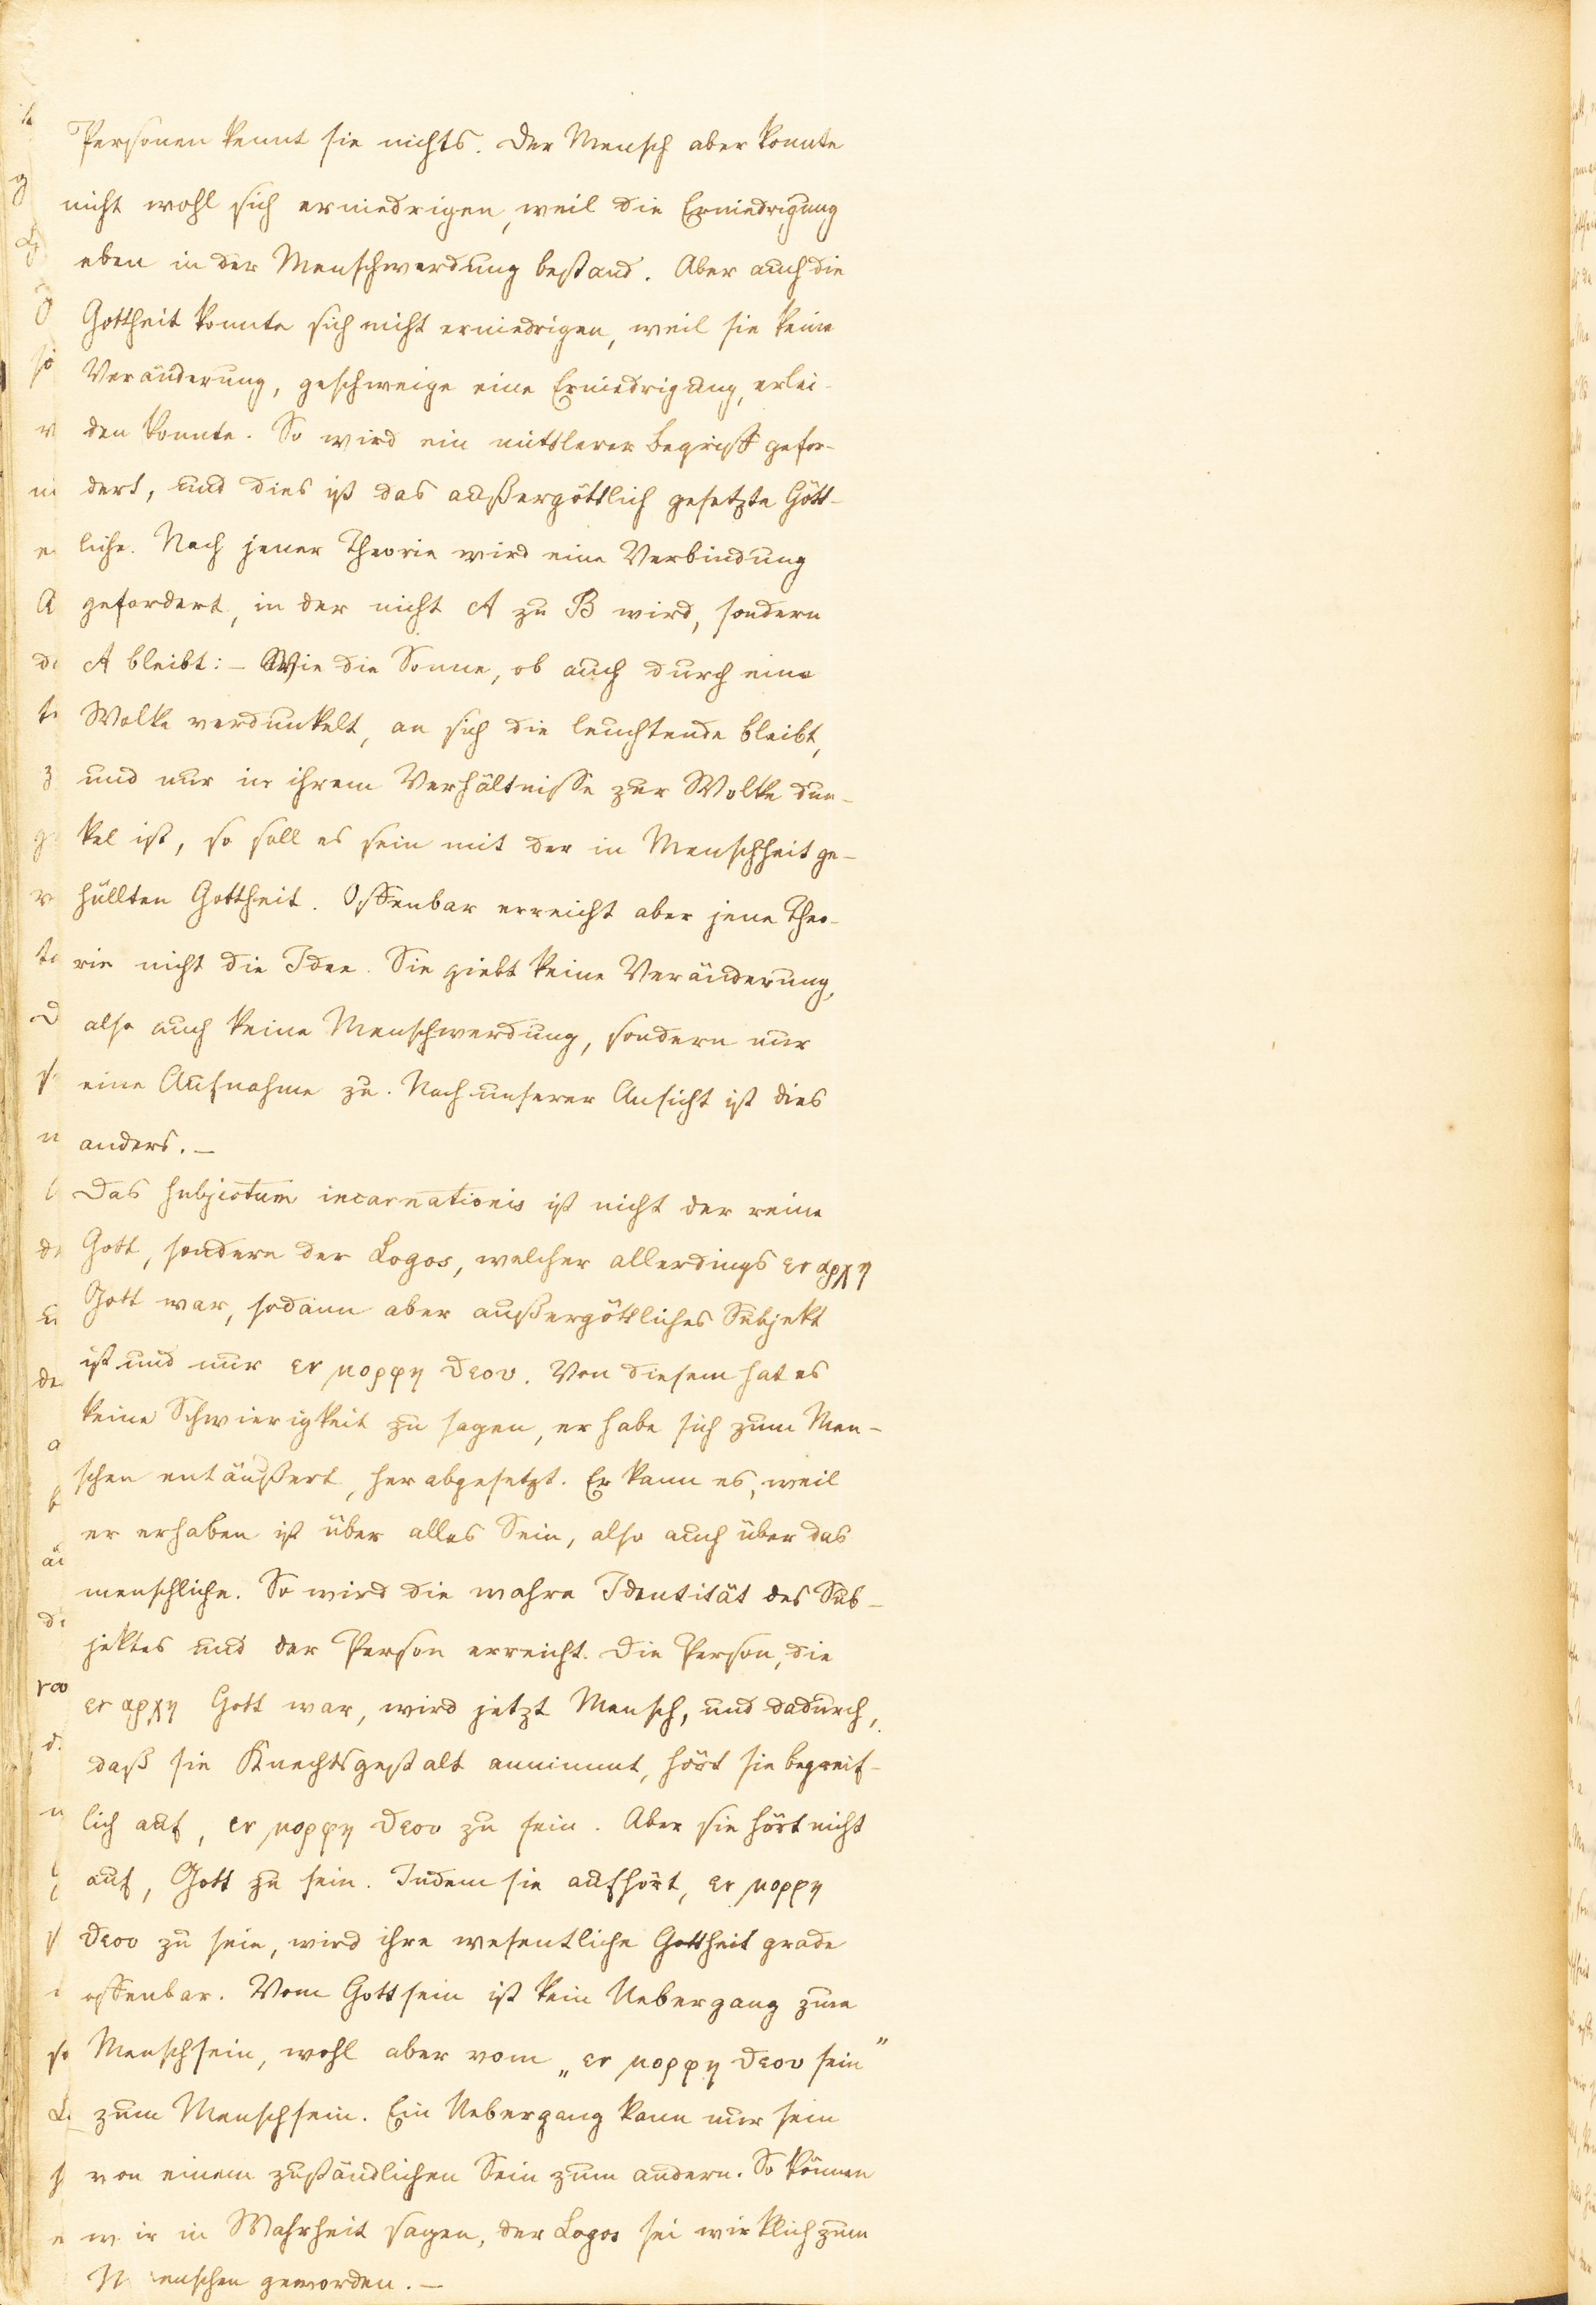 Personen kennt sie nichts. Der Mensch aber konnte
nicht wohl sich erniedrigen, weil die Erniedrigung
eben in der Menschwerdung bestand. Aber auch die
Gottheit konnte sich nicht erniedrigen, weil sie keine
Veränderung, geschweige eine Erniedrigung, erlei-
den konnte. So wird ein mittlerer Begriff gefor-
dert, und dies ist das außergöttlich gesetzte Gött-
liche. Nach jener Theorie wird eine Verbindung
gefordert, in der nicht A zu B wird, sondern
A bleibt: – Wie die Sonne, ob auch durch eine
Wolke verdunkelt, an sich die leuchtende bleibt,
und nur in ihrem Verhältnisse zur Wolke dun-
kel ist, so soll es sein mit der in Menschheit ge-
hüllten Gottheit. Offenbar erreicht aber jene Theo-
rie nicht die Idee. Sie giebt keine Veränderung,
also auch keine Menschwerdung, sondern nur
eine Aufnahme zu. Nach unserer Ansicht ist dies
anders. –
Das subjectum incarnationis ist nicht der reine
Gott, sondern der Logos, welcher allerdings εν αρχη
Gott war, sodann aber außergöttliches Subjekt
ist und nur εν μορφη θεου. Von diesem hat es
keine Schwierigkeit zu sagen, er habe sich zum Men-
schen entäußert, herabgesetzt. Er kann es, weil
er erhaben ist über alles Sein, also auch über das
menschliche. So wird die wahre Identität des Sub-
jektes und der Person erreicht. Die Person, die
εν αρχη Gott war, wird jetzt Mensch, und dadurch,
daß sie Knechtsgestalt annimmt, hört sie begreif-
lich auf, εν μορφη θεου zu sein. Aber sie hört nicht
auf, Gott zu sein. Indem sie aufhört, εν μορφη
θεου zu sein, wird ihre wesentliche Gottheit grade
offenbar. Vom Gottsein ist kein Uebergang zum
Menschsein, wohl aber vom „εν μορφη θεου sein"
zum Menschsein. Ein Uebergang kann nur sein
von einem zuständlichen Sein zum andern. So können
wir in Wahrheit sagen, der Logos sei wirklich zum
Menschen geworden. –